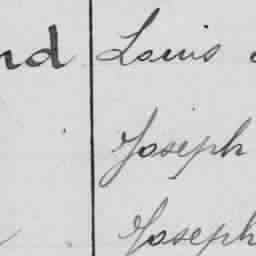 nd Louis
Joseph
Joseph